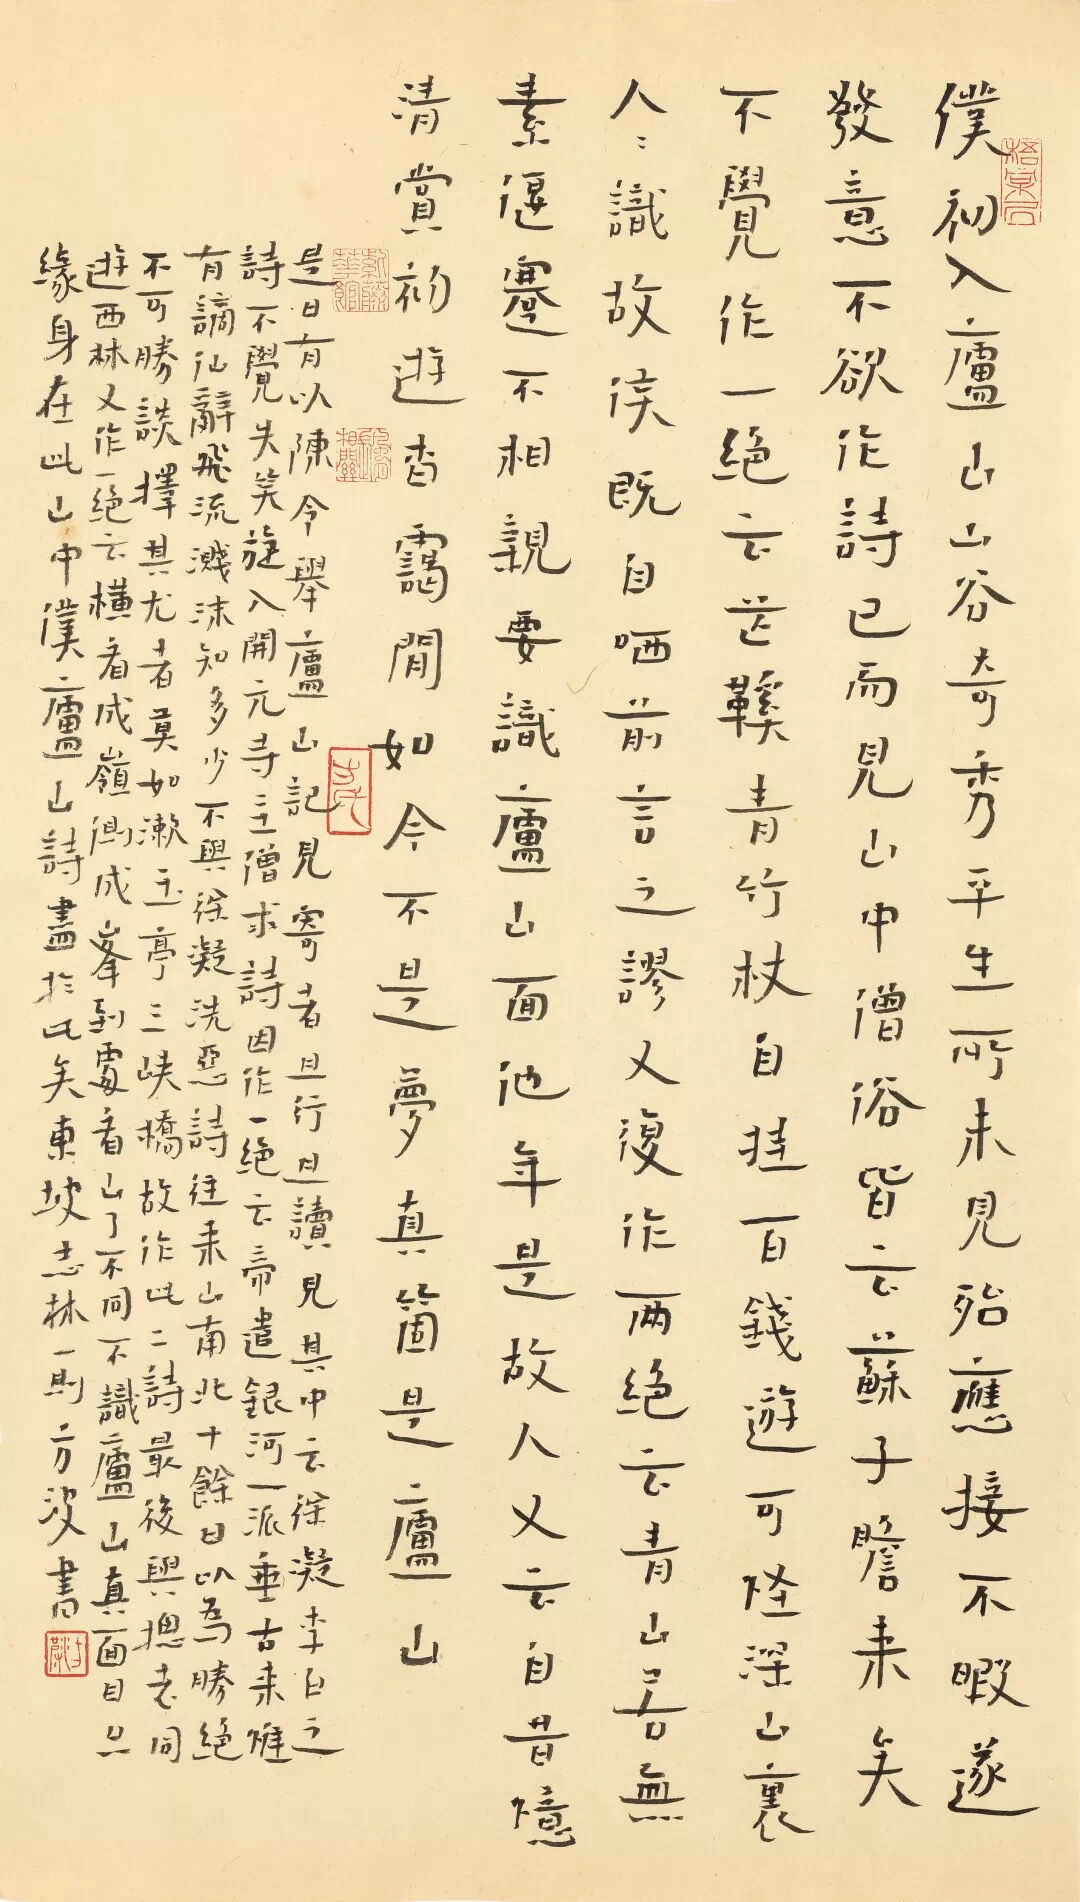 僕初入廬山山谷奇秀平生所未見殆應接不暇遂
發意不欲作詩已而見山中僧俗皆云蘇子瞻来矣
不覺作一絕云芒鞵青竹杖自挂百錢遊可怪深山裏
人〻識故侯既自哂前言之謬又復作两絕云青山若無
素偃蹇不相親要識廬山面他年是故人又云自昔憶
清賞初遊杳靄間如今不是夢真箇是廬山
是日有以陳令舉廬山記見寄者且行且讀見其中云徐凝李白之
詩不覺失笑旋入開元寺主僧求詩因作一絕云帝遣銀河一派垂古来惟
有謫仙辭飛流濺沫知多少不與徐凝洗惡詩往来山南北十餘日以為勝絕
不可勝談擇其尤者莫如漱玉亭三峽橋故作此二詩最後與摠老同
遊西林又作一絕云横看成嶺側成峯到處看山了不同不識廬山真面目只
緣身在此山中僕廬山詩盡於此矣東坡志林一則方波書